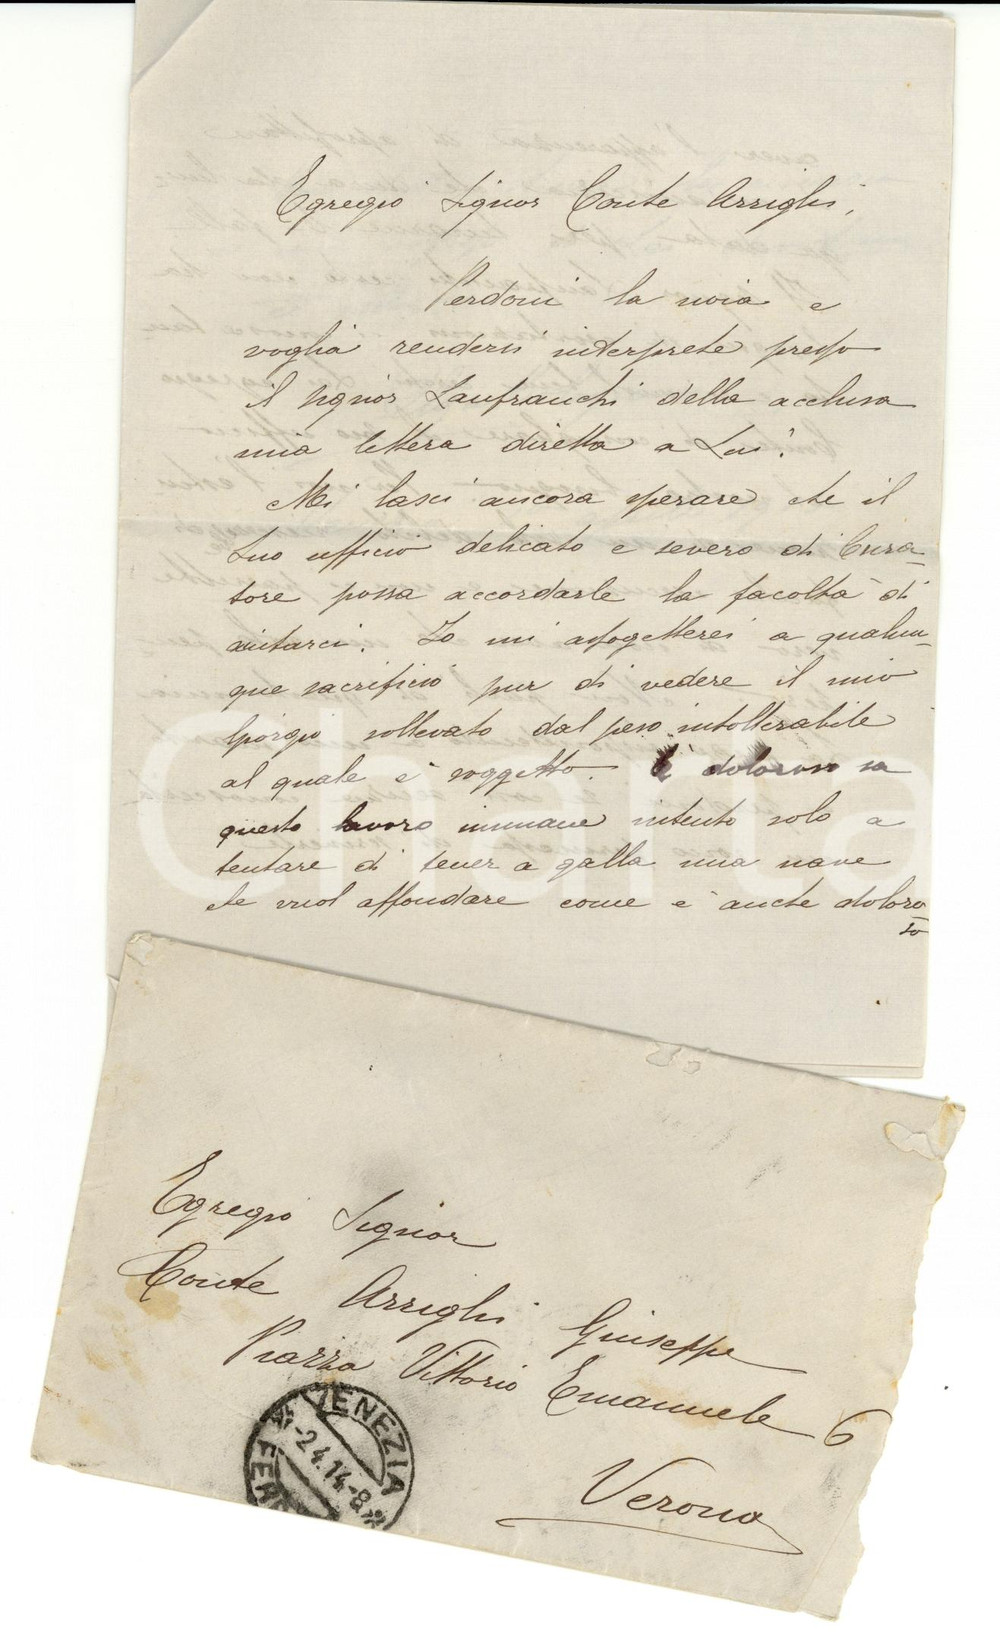 Egregio Signor Conte Arrighi,
Perdoni la noia e
voglia rendersi interprete presso
il Signor Lanfranchi della acclusa
mia lettera diretta a Lui.
Mi lasci ancora sperare che il
Suo ufficio delicato e severo di Cura-
tore possa accordarle la facoltà di
aiutarci. Io mi assogetterei a qualun-
que sacrificio pur di vedere il mio
Giorgio sollevato dal peso intollerabile
al quale è soggetto. È doloroso sa
questo lavoro immane intento solo a
tentare di tener a galla una nave
che vuol affondare come è anche doloro-
so
Egregio Signor
Conte Arrighi Giuseppe
Piazza Vittorio Emanuele 6
Verona
VENEZIA
-2.4.14-8
Charta